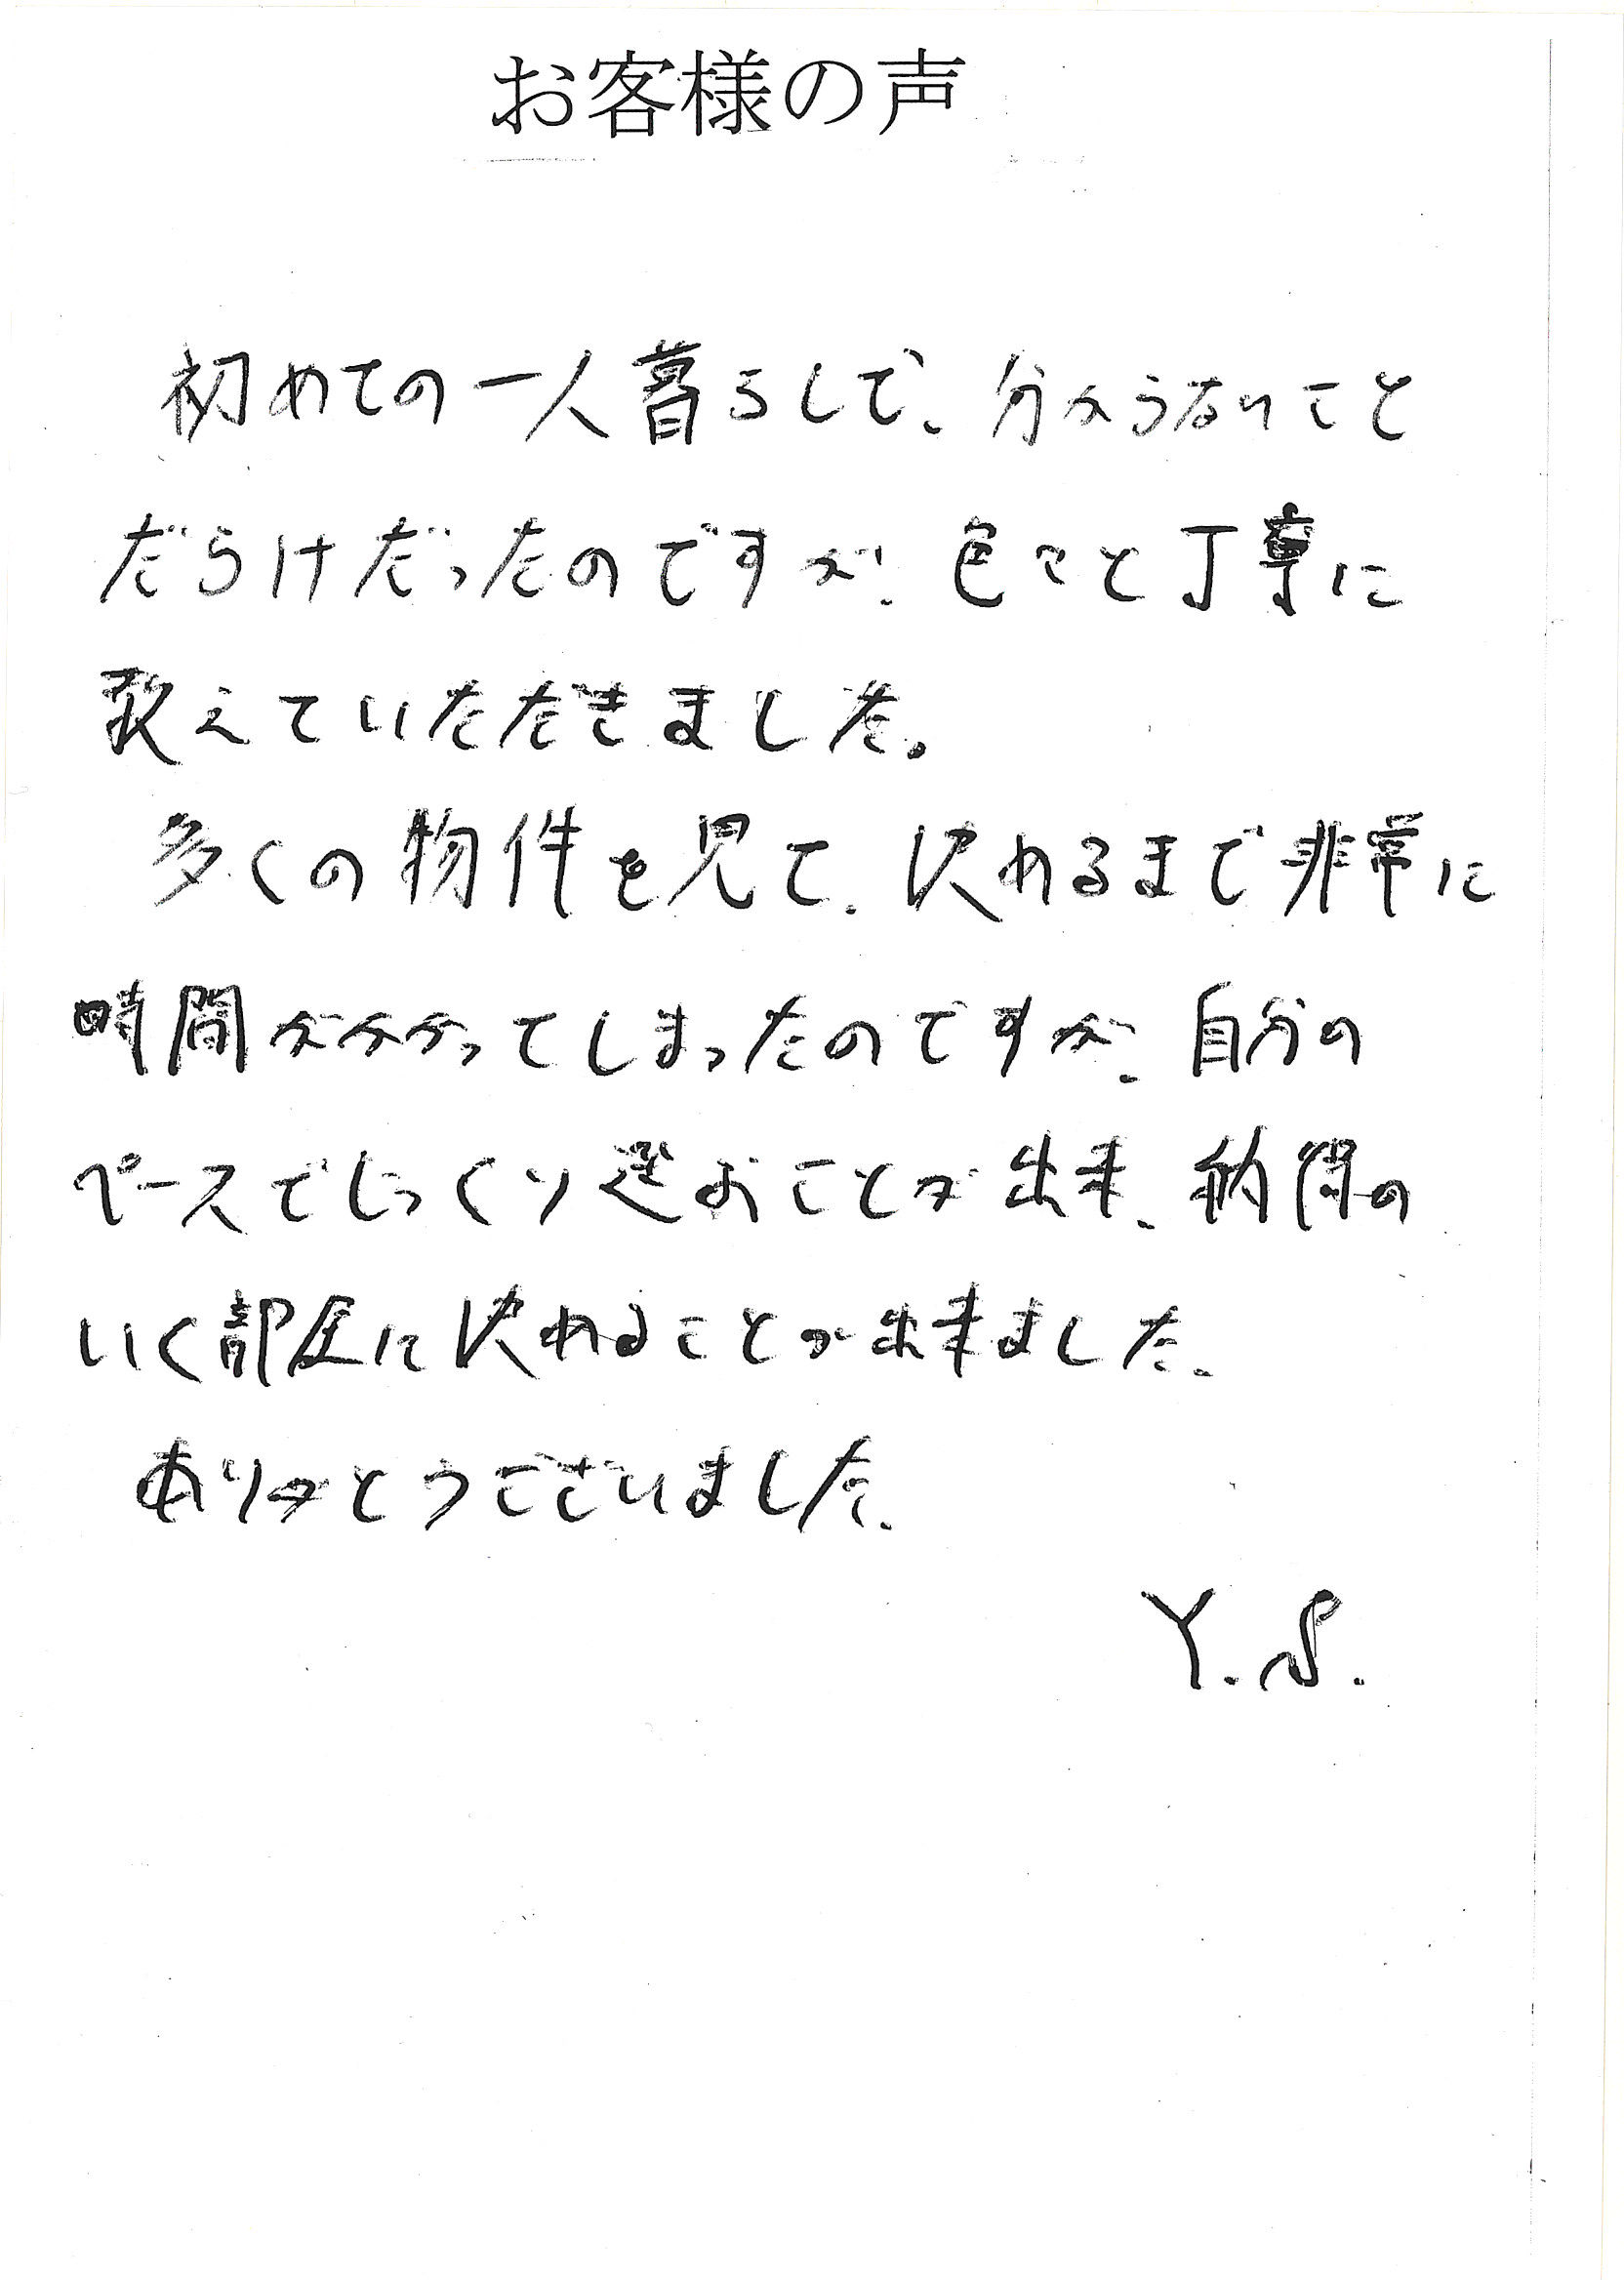 お客様の声
初めての一人暮らしで、分からないこと
だらけだったのですが、色々と丁寧に
教えていただきました。
多くの物件を見て、決めるまで非常に
時間がかかってしまったのですが、自分の
ペースでじっくり選ぶことが出来、納得の
いく部屋に決めることが出来ました。
ありがとうございました。
Y.S.